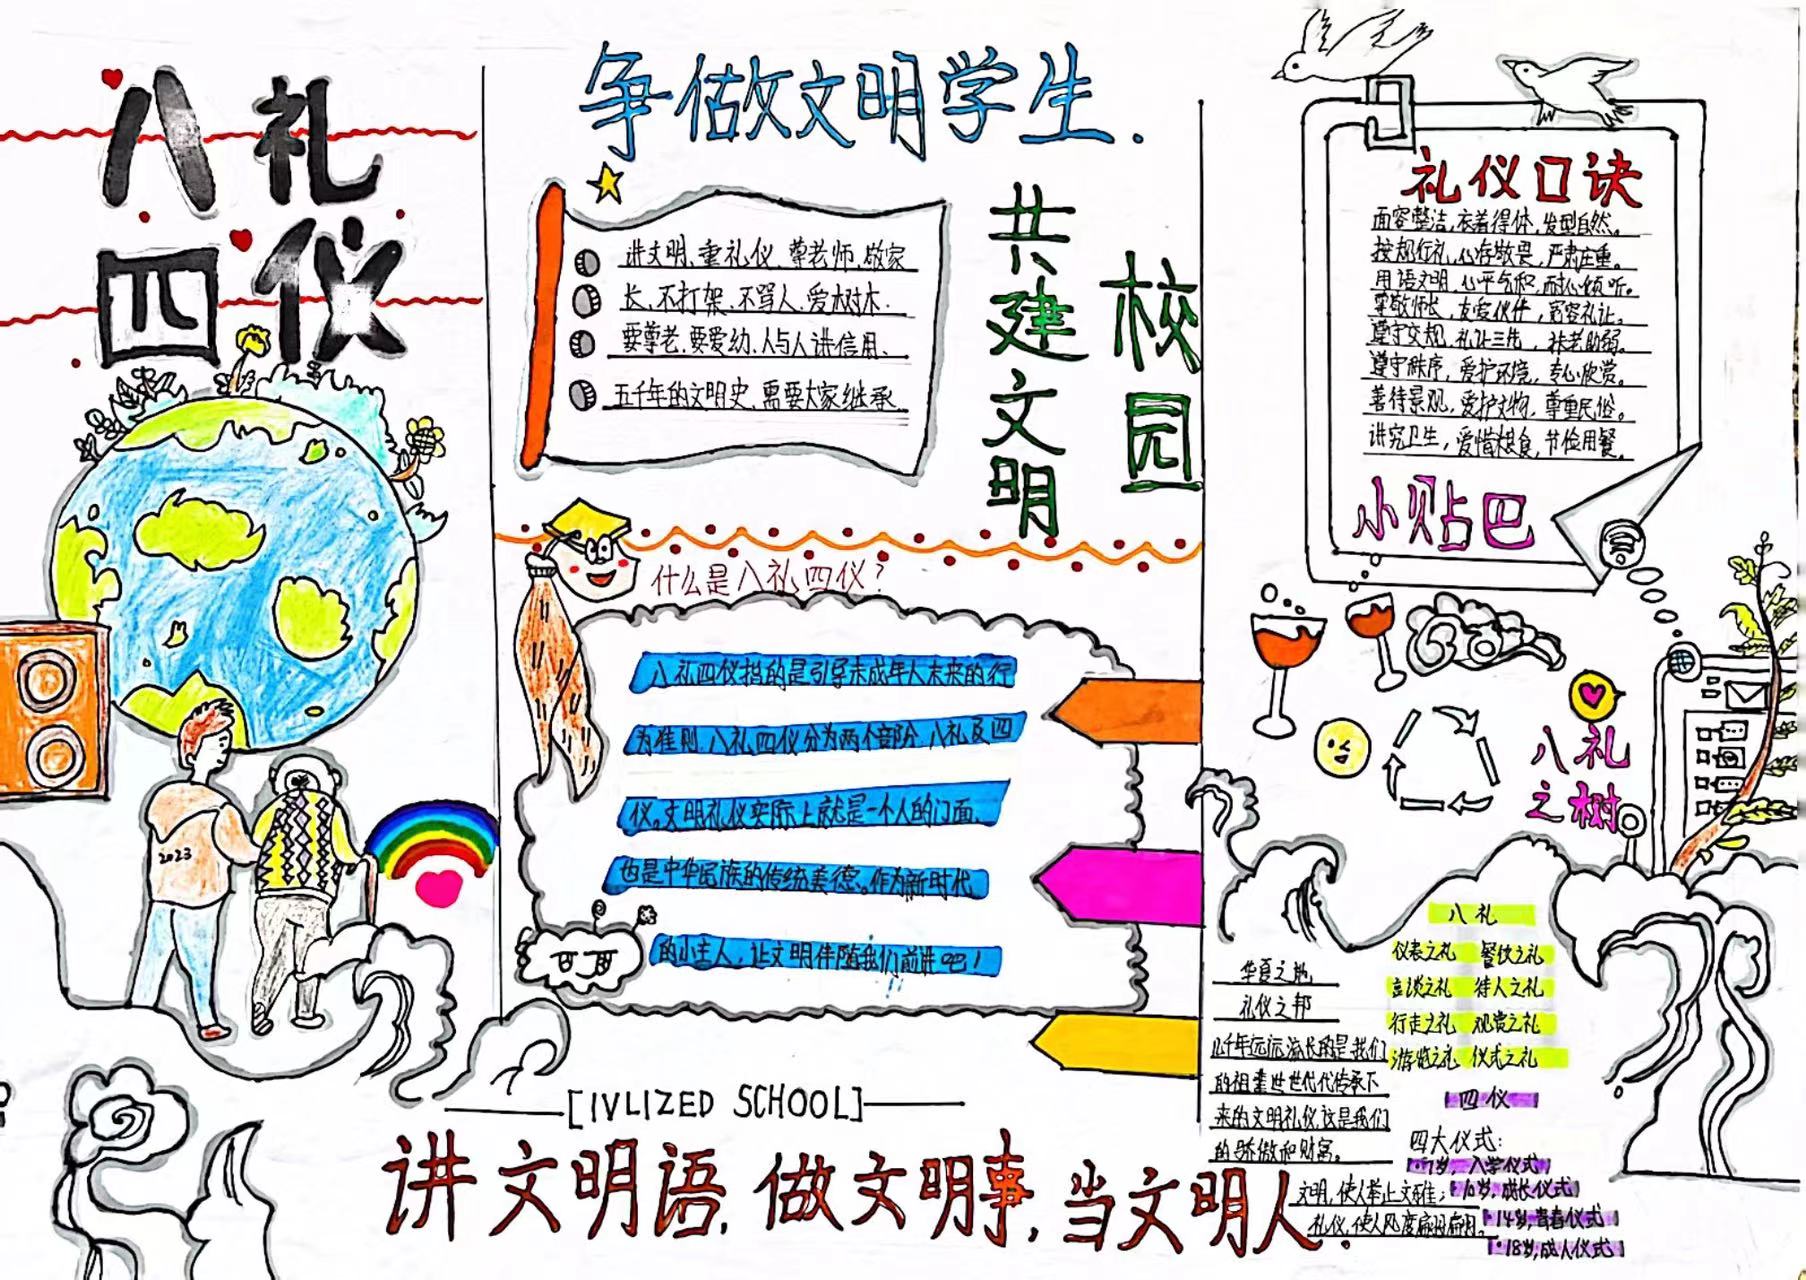 八礼
四仪
2023
争做文明学生.
讲文明、重礼仪、尊老师、敬家
长、不打架、不骂人、爱树木.
要尊老、要爱幼、人与人讲信用、
五千年的文明史、需要大家继承
共建文明
校园
什么是八礼四仪?
八礼四仪指的是引导未成年人未来的行
为准则,八礼四仪分为两个部分,八礼及四
仪。文明礼仪实际上就是一个人的门面、
也是中华民族的传统美德。作为新时代
的小主人,让文明伴随我们前进吧!
[IVLIZED SCHOOL]
讲文明语,做文明事,当文明人.
礼仪口诀
面容整洁,衣着得体,发型自然。
按规行礼,心存敬畏,严肃庄重。
用语文明,心平气和,耐心倾听。
尊敬师长,友爱伙伴,宽容礼让。
遵守交规,礼让三先,扶老助弱。
遵守秩序,爱护环境,专心欣赏。
善待景观,爱护文物,尊重民俗。
讲究卫生,爱惜粮食,节俭用餐。
小贴巴
八礼
之树
华夏之地
礼仪之邦
几千年远远流长的是我们
的祖辈世世代代传承下
来的文明礼仪,这是我们
的骄傲和财富。
文明,使人举止文雅;
礼仪,使人风度翩翩
八礼
仪表之礼 餐饮之礼
言谈之礼 待人之礼
行走之礼 观赏之礼
游览之礼 仪式之礼
四仪
四大仪式:
·7岁,入学仪式
·10岁,成长仪式
·14岁,青春仪式
·18岁,成人仪式